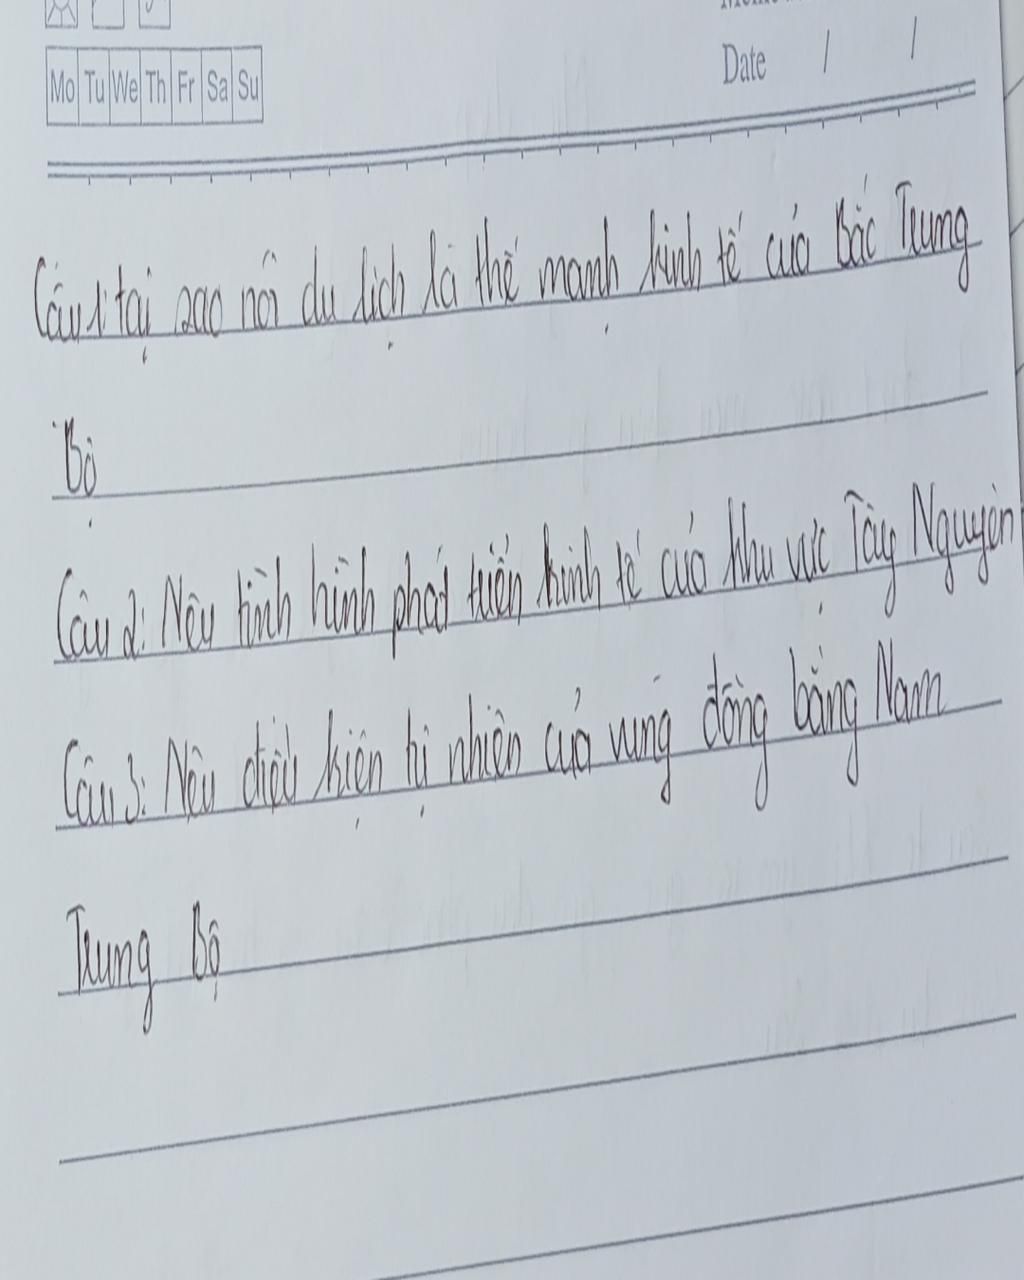 Mo Tu We Th Fr Sa Su
Date / /
Câu 1: tại sao nói du lịch là thế mạnh kinh tế của Bắc Trung
Bộ
Câu 2: Nêu tình hình phát triển kinh tế của khu vực Tây Nguyên
Câu 3: Nêu điều kiện tự nhiên của vùng đồng bằng Nam
Trung Bộ